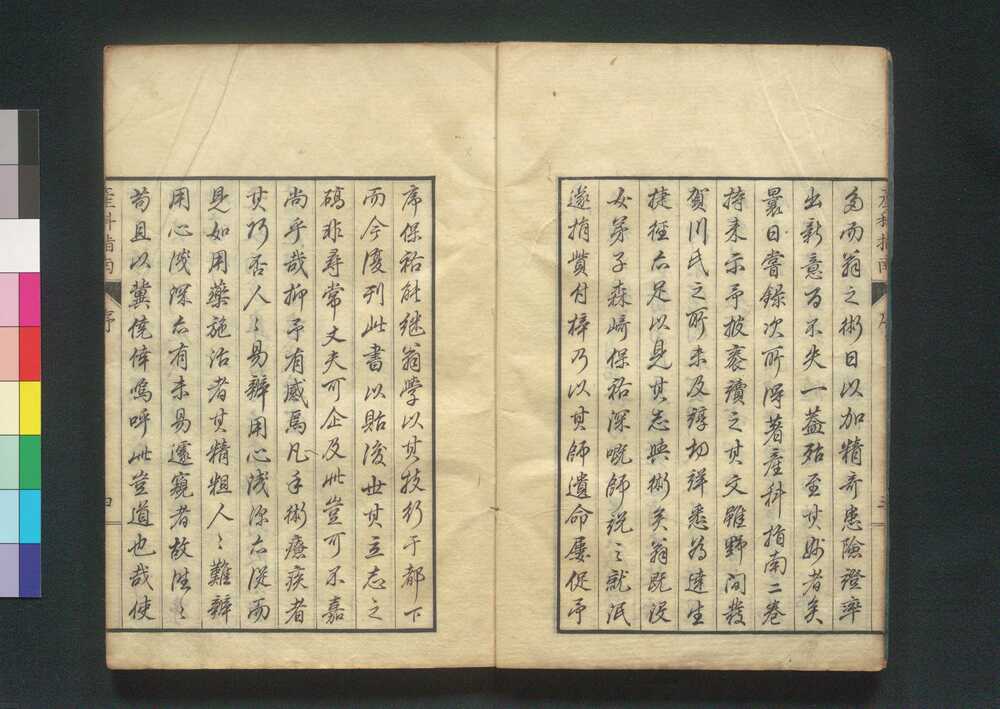 産科指南
序
多而翁之術日以加精奇患險證率
出新意百不失一蓋殆至其妙者矣
曩日嘗錄次所得著産科指南二卷
持来示予披袠讀之其文雖野間發
賀川氏之所未及諄切詳悉為達生
捷徑亦足以見其志與術矣翁既没
女弟子森崎保祐深嘅師説之就泯
遂捐貲付梓乃以其師遺命屢促予
序保祐能継翁學以其技行于都下
而今復刊此書以貽後世其立志之
碻非尋常丈夫可企及此豈可不嘉
尚乎哉抑予有感焉凡手術療疾者
其巧否人〻易辨用心浅深亦從而
見如用藥施治者其精粗人〻難辨
用心浅深亦有未易遽窺者故往〻
苟且以冀僥倖嗚呼此豈道也哉使
産科指南
序
四